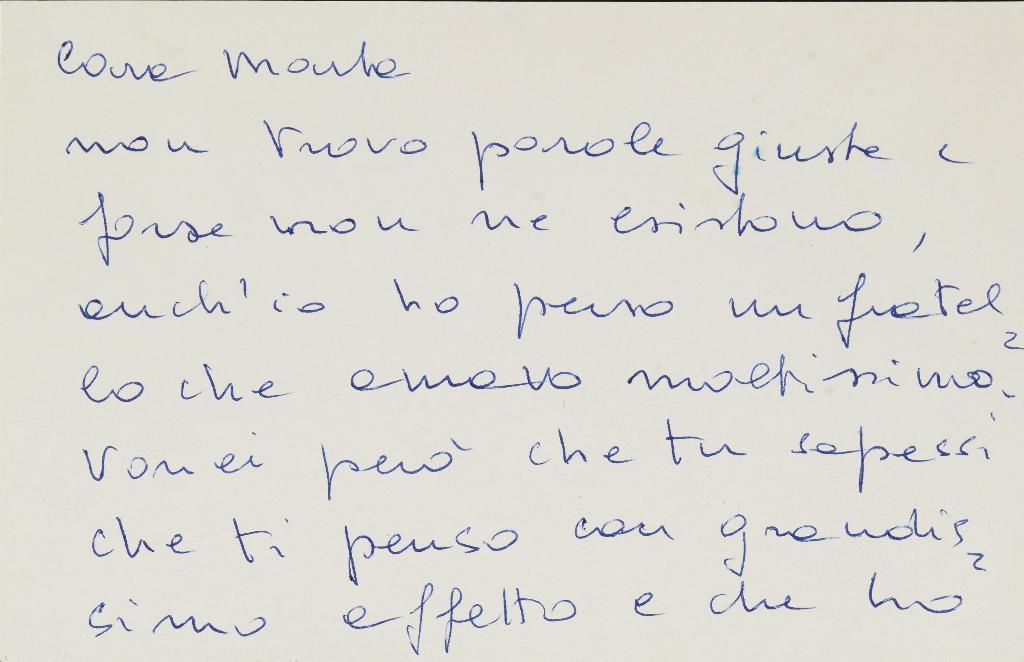 Cara Marta
non trovo parole giuste e
forse non ne esistono,
anch'io ho perso un fratel
lo che amavo moltissimo.
Vorrei però che tu sapessi
che ti penso con grandis
simo affetto e che ho